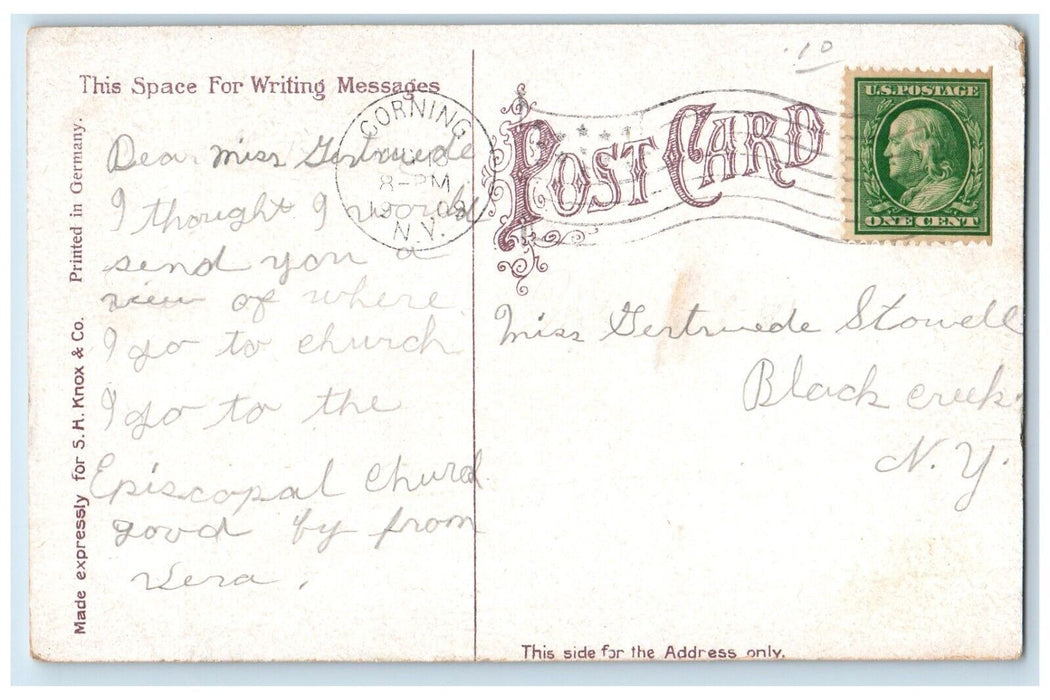 This Space For Writing Messages
Printed in Germany.
Made expressly for S. H. Knox & Co.
Dear Miss Gertruede
I thought I would
send you a
view of where
I go to church
I go to the
Episcopal Church
good by from
Vera.
CORNING
8-PM
N.Y.
POST CARD
10
U.S. POSTAGE
ONE CENT
Miss Gertruede Stowell
Black creek.
N. Y.
This side for the Address only.